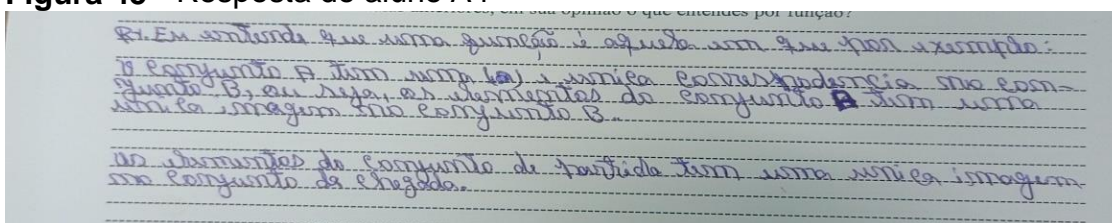 Figura 45 - Resposta do aluno A4
em sua opinião o que entendes por função?
R+. Eu entende que uma função é aquela em que por exemplo:
O conjunto A tem uma (só) e unica correspodencia no con-
junto B, ou seja, os elementos do conjunto A tem uma
unica imagem no conjunto B.
os elementos do conjunto de partida tem uma unica imagem
no conjunto de chegada.